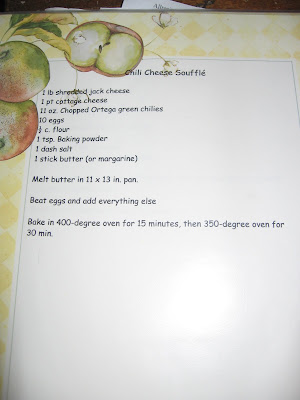 Chili Cheese Soufflé
1 lb shredded jack cheese
1 pt cottage cheese
11 oz. Chopped Ortega green chilies
10 eggs
½ c. flour
1 tsp. Baking powder
1 dash salt
1 stick butter (or margarine)
Melt butter in 11 x 13 in. pan.
Beat eggs and add everything else
Bake in 400-degree oven for 15 minutes, then 350-degree oven for
30 min.